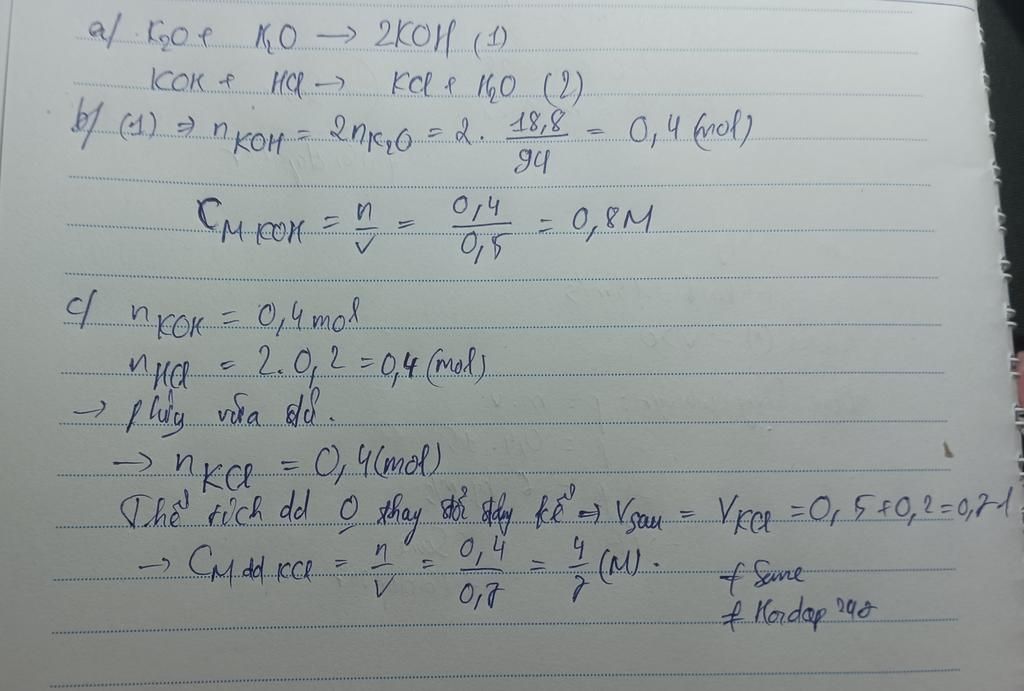 a/ K₂O + H₂O → 2KOH (1)
KOH + HCl → KCl + H₂O (2)
b/ (1) ⇒ n_KOH = 2n_K₂O = 2 . 18,8/94 = 0,4 (mol)
C_M KOH = n/V = 0,4/0,5 = 0,8M
c/ n_KOH = 0,4 mol
n_HCl = 2.0,2 = 0,4 (mol)
→ phứ vừa đủ.
→ n_KCl = 0,4 (mol)
Thể tích dd 0 thay đổi đáy kể ⇒ V_sau = V_KCl = 0,5 + 0,2 = 0,7 l
→ C_M dd KCl = n/V = 0,4/0,7 = 4/7 (M).